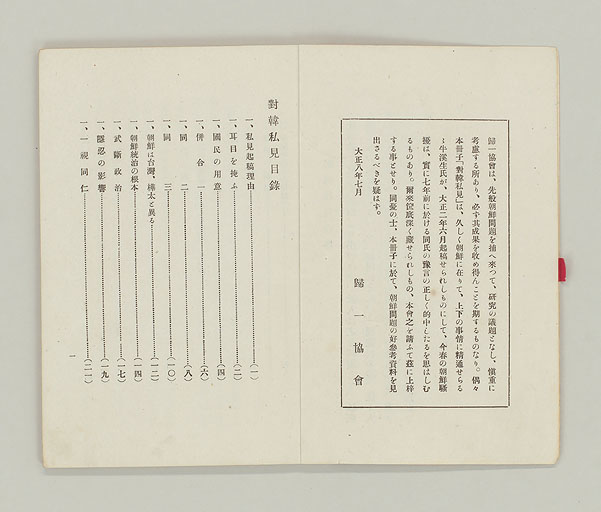 歸一協會は、先般朝鮮問題を捕へ來つて、研究の議題となし、愼重に
考慮する所あり、必ず其成果を收め得んことを期するものなり。偶々
本冊子「對韓私見」は、久しく朝鮮に在りて、上下の事情に精通せらる
ゝ牛溪生氏が、大正二年六月起稿せられしものにして、今春の朝鮮騷
擾は、實に七年前に於ける同氏の豫言の正しく的中したるを思はしむ
るものあり。爾來筐底深く藏せられしもの、本會之を請ふて茲に上梓
する事とせり。同憂の士、本冊子に於て、朝鮮問題の好參考資料を見
出さるべきを疑はず。
大正八年七月
歸一協會
對韓私見目錄
一、私見起稿理由……(一)
一、耳目を掩ふ……(二)
一、國民の用意……(四)
一、併合一……(六)
一、同二……(八)
一、同三……(一〇)
一、朝鮮は台灣、樺太と異る……(一二)
一、朝鮮統治の根本……(一四)
一、武斷政治……(一七)
一、隱忍の影響……(一九)
一、一視同仁……(二一)
一